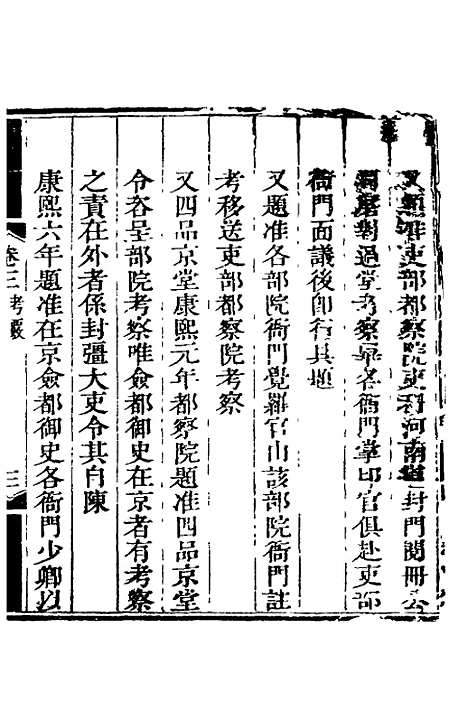 又題准吏部都察院吏科河南道封門閱冊公
同磨對過堂考察畢各衙門掌印官俱赴吏部
衙門面議後卽行具題
又題准各部院衙門覺羅官山該部院衙門註
考移送吏部都察院考察
又四品京堂康熙元年都察院題准四品京堂
令咨呈部院考察唯僉都御史在京者有考察
之責在外者係封疆大吏令其自陳
康熙六年題准在京僉都御史各衙門少卿以
卷三考覈
三